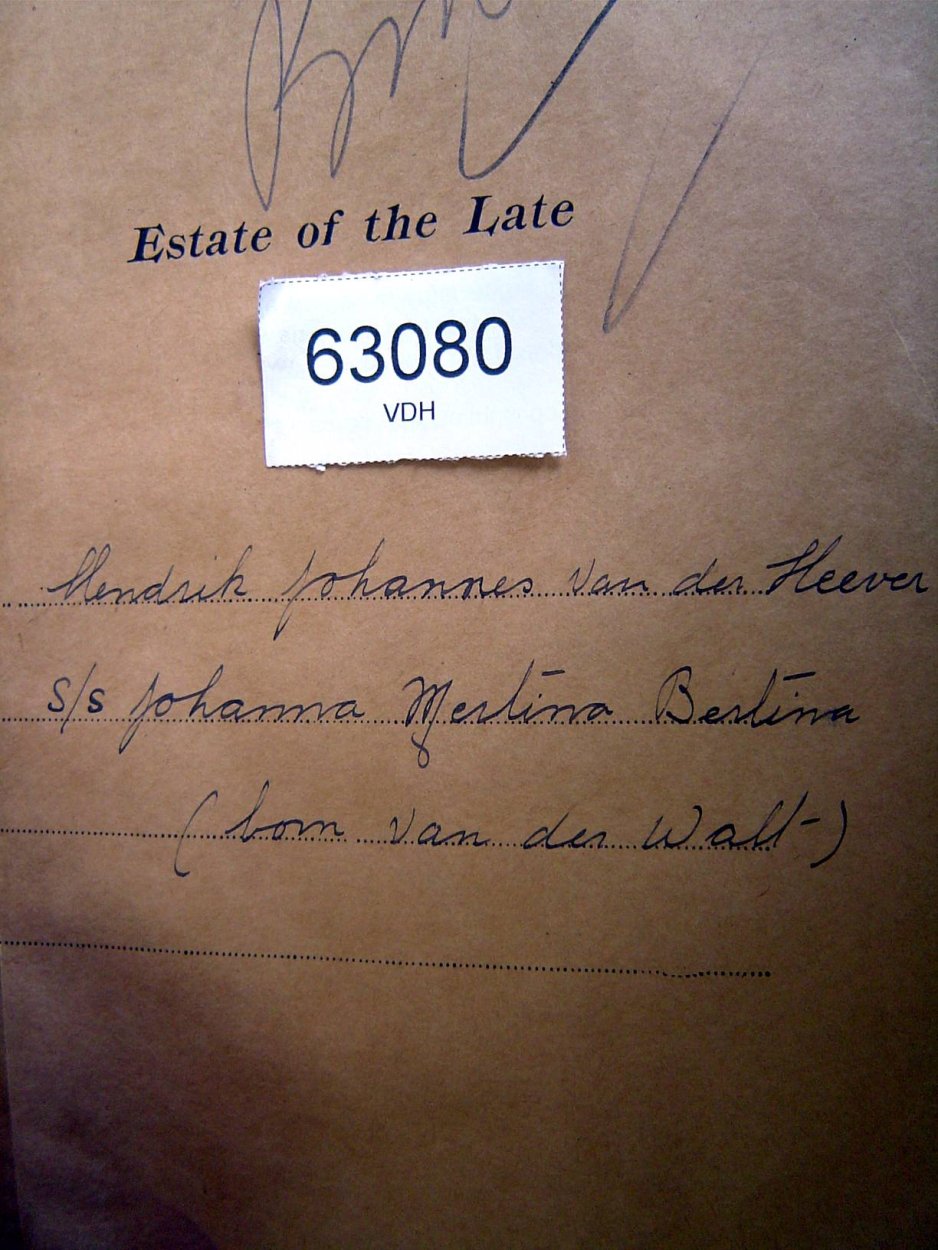 Estate of the Late
63080
VDH
Hendrik Johannes van der Heever
S/s Johanna Mertina Bertina
(born van der Walt)